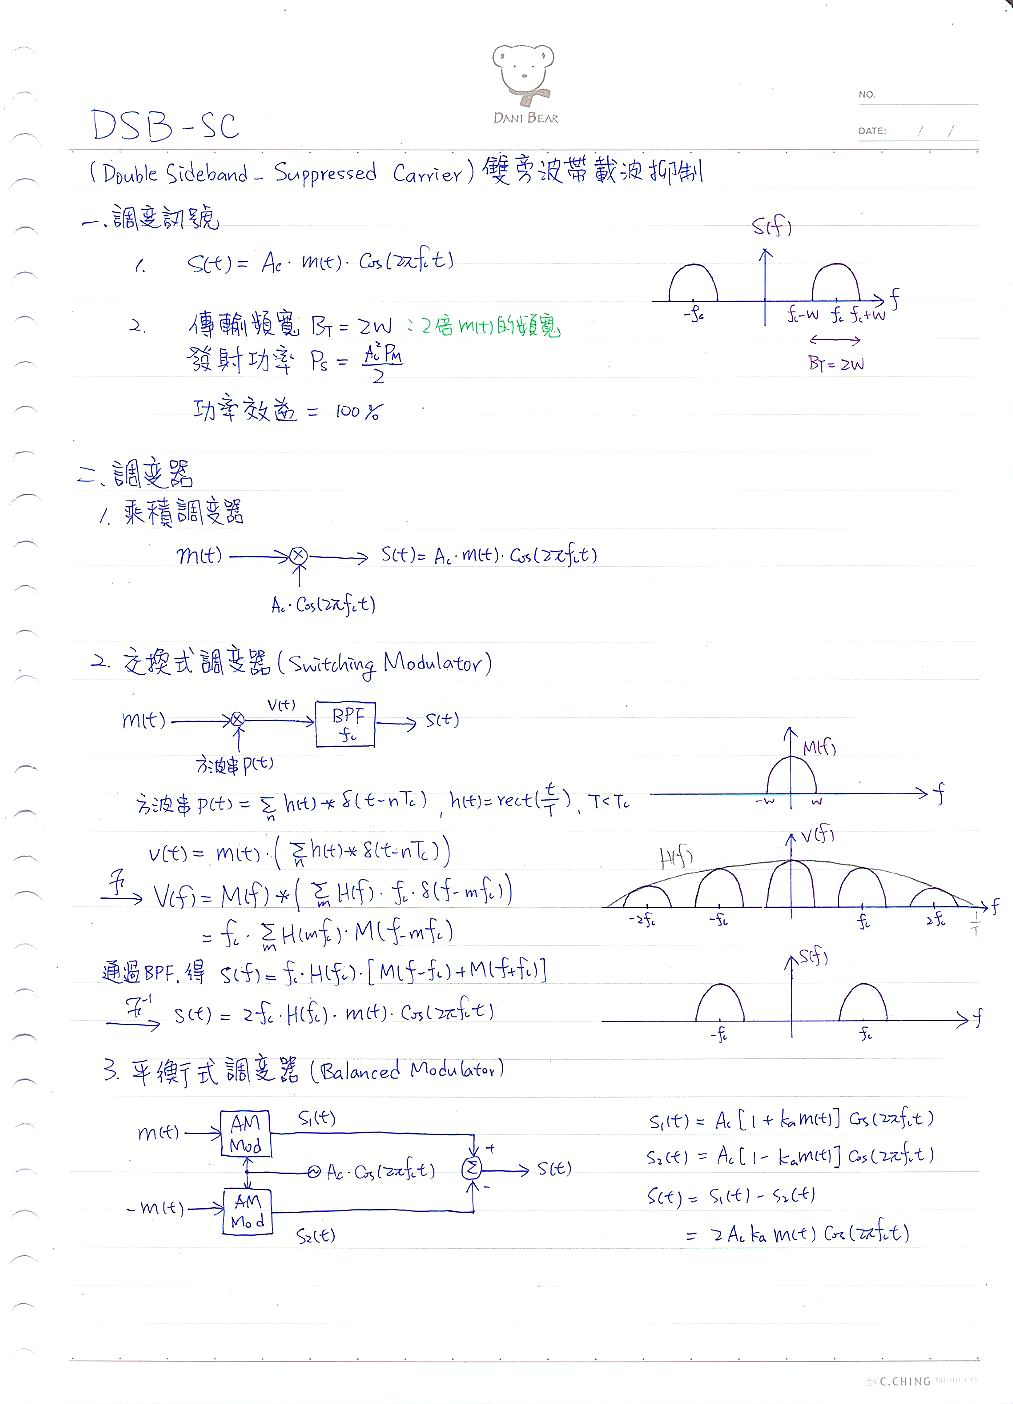 DANI BEAR
NO.
DATE: / /
DSB-SC
(Double Sideband - Suppressed Carrier) 雙旁波帶載波抑制
一、調变訊號
1. S(t) = Ac · m(t) · Cos(2πfct)
2. 傳輸頻寬 BT = 2W : 2倍m(t)的頻寬
發射功率 Ps = Ac²PM / 2
功率效益 = 100%
S(f)
-fc fc-W fc fc+W f
BT = 2W
二、調变器
1. 乘積調变器
m(t) ⊗ S(t) = Ac · m(t) · Cos(2πfct)
Ac · Cos(2πfct)
2. 交換式調变器 (Switching Modulator)
m(t) ⊗ V(t) BPF fc S(t)
方波串P(t)
方波串P(t) = Σn h(t) * δ(t-nTc), h(t) = rect(t/T), T<Tc
V(t) = m(t) · (Σn h(t) * δ(t-nTc))
F→ V(f) = M(f) * (Σm H(f) · fc · δ(f-mfc))
= fc · Σm H(mfc) · M(f-mfc)
通過BPF, 得 S(f) = fc · H(fc) · [M(f-fc) + M(f+fc)]
F⁻¹→ S(t) = 2fc · H(fc) · m(t) · Cos(2πfct)
M(f)
-W W f
H(f) V(f)
-2fc -fc fc 2fc 1/T f
S(f)
-fc fc f
3. 平衡式調变器 (Balanced Modulator)
m(t) AM Mod S1(t) +
Ac · Cos(2πfct) Σ S(t)
-m(t) AM Mod S2(t) -
S1(t) = Ac [1 + ka m(t)] Cos(2πfct)
S2(t) = Ac [1 - ka m(t)] Cos(2πfct)
S(t) = S1(t) - S2(t)
= 2Ac ka m(t) Cos(2πfct)
C.CHING